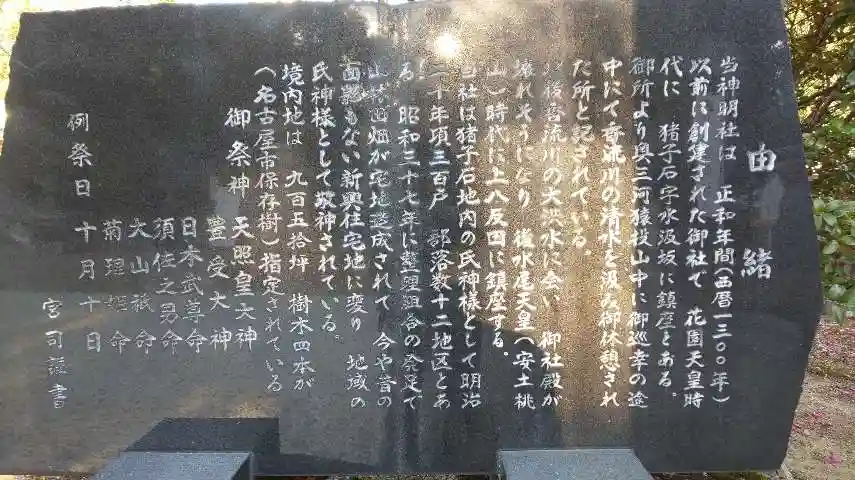 由緒
当神明社は 正和年間(西暦一三〇〇年)
以前に創建された御社で 花園天皇時
代に 猪子石字水汲坂に鎮座とある。
御所より奥三河猿投山中に御巡幸の途
中にて香流川の清水を汲み御休憩され
た所と記されている。
後香流川の大洪水に会い 御社殿が
壊れそうになり 後水尾天皇(安土桃
山)時代に上八反田に鎮座する。
当社は猪子石地内の氏神様として明治
二十年頃三百戸 部落数十二地区とあ
る。昭和三十七年に整理組合の発足で
山林田畑が宅地造成されて 今や昔の
面影もない新興住宅地に変り 地域の
氏神様として敬神されている。
境内地は 九百五拾坪 樹木四本が
(名古屋市保存樹)指定されている
御祭神 天照皇大神
豊受大神
日本武尊命
須佐之男命
大山祇命
菊理姫命
例祭日 十月十日
宮司謹書